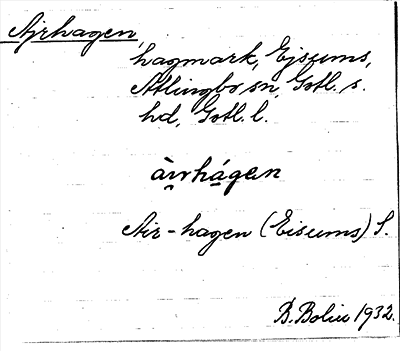 Ajrhagen,
hagmark, Ejsums,
Atlingbo sn, Gotl. s.
hd, Gotl. l.
àrrhágen
Air-hagen (Eisums) S.
B. Bolin 1932.